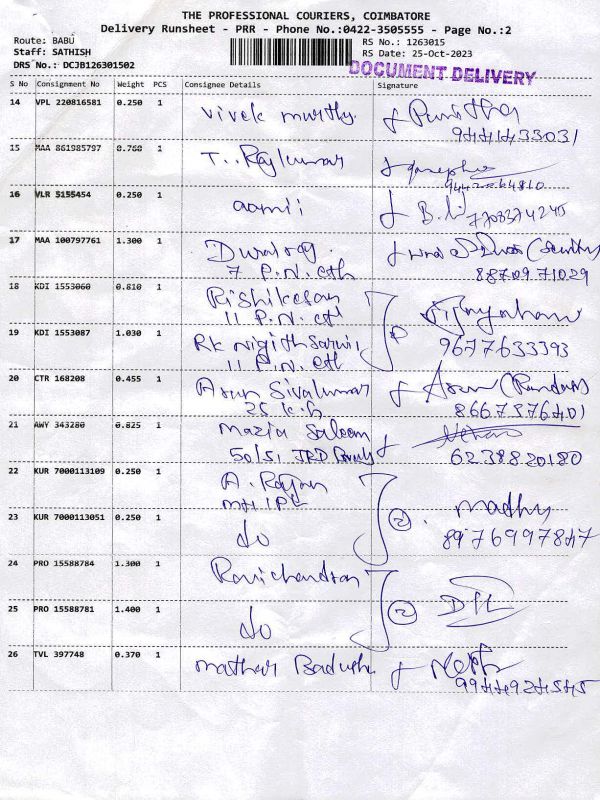 THE PROFESSIONAL COURIERS, COIMBATORE
Delivery Runsheet - PRR - Phone No.:0422-3505555 - Page No.:2
Route: BABU RS No.: 1263015
Staff: SATHISH RS Date: 25-Oct-2023
DRS No.: DCJB126301502 DOCUMENT DELIVERY
S No Consignment No Weight PCS Consignee Details Signature
14 VPL 220816581 0.250 1 Vivek murthy
9444433031
15 MAA 861985797 0.760 1 T. Rajkumar
16 VLR 5155454 0.250 1 aamii
7708374245
17 MAA 100797761 1.300 1 Durairaj (Security)
7 P.N. cth 8870971029
18 KDI 1553060 0.810 1 Rishikesan
11 P.N. ct
19 KDI 1553087 1.030 1 RK 9677633393
11 P.N. cth
20 CTR 168208 0.455 1 Arun Sivakumar Arun
25 K.G
21 AWY 343280 0.825 1 Mazia Saleem
50/51 6238820180
22 KUR 7000113109 0.250 1 A. Rajan
23 KUR 7000113051 0.250 1 do 2 madhu
8976997847
24 PRO 15588784 1.300 1 Ravichandran
25 PRO 15588781 1.400 1 do 2
26 TVL 397748 0.370 1 mathar Badusha
9944924545